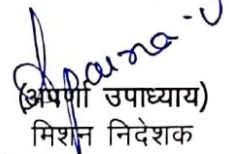 Aparna-U
(अपर्णा उपाध्याय)
मिशन निदेशक